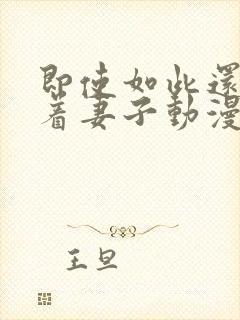 即使如此還
着妻子動漫
王旦